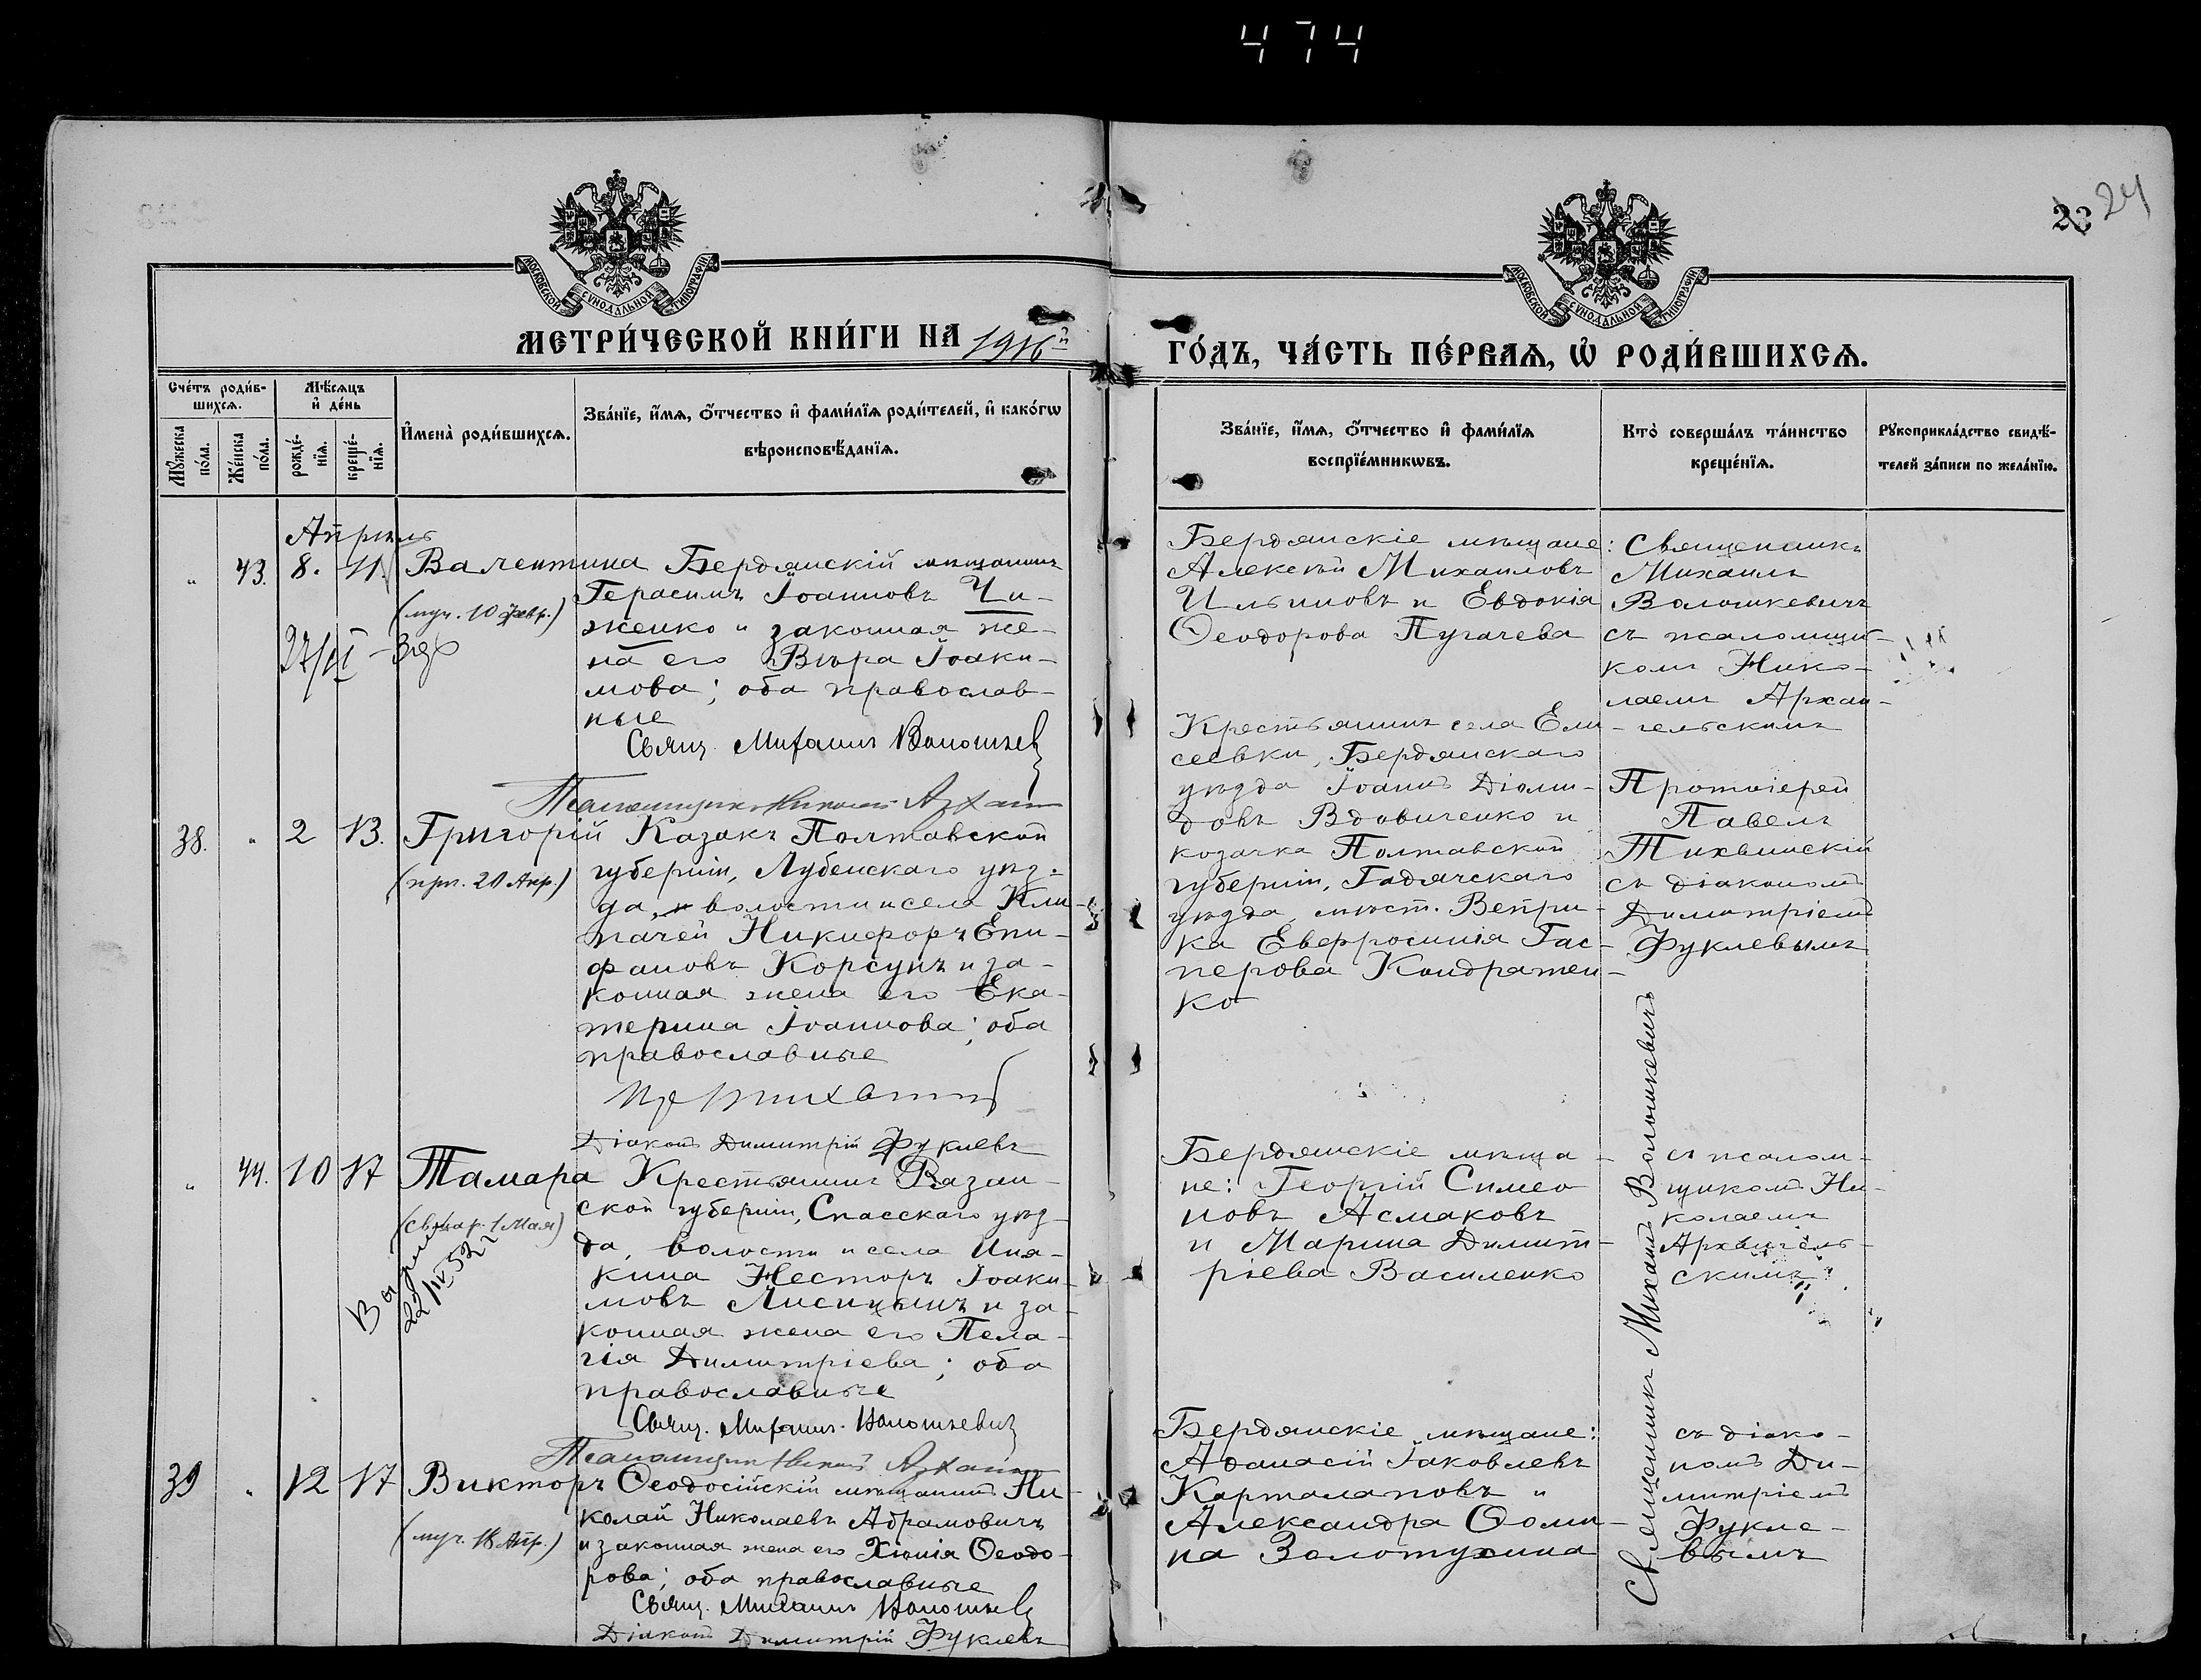 474
24
23
МОСКОВСКОЙ СѴНОДАЛЬНОЙ ТИПОГРАФІИ
МОСКОВСКОЙ СѴНОДАЛЬНОЙ ТИПОГРАФІИ
МЕТРИ́ЧЕСКОЙ КНИ́ГИ НА 1916й
ГО́ДЪ, ЧА́СТЬ ПЕ́РВАѦ, Ѡ҆ РОДИ́ВШИХСѦ.
Сче́тъ роди́в-
шихсѧ.
Мꙋ́жеска по́ла.
Же́нска по́ла.
Мѣ́сѧцъ и҆ де́нь
рожде́-
нїѧ.
креще́-
нїѧ.
И҆мена̀ роди́вшихсѧ.
Зва́нїе, и҆́мѧ, ѻ҆́тчество и҆ фами́лїѧ роди́телей, и҆ како́гѡ
вѣроисповѣ́данїѧ.
Зва́нїе, и҆́мѧ, ѻ҆́тчество и҆ фами́лїѧ
воспрїе́мникѡвъ.
Кто̀ соверша́лъ та́инство
креще́нїѧ.
Рꙋкоприкла́дство свидѣ́-
телей за́писи по жела́нїю.
Апрѣль
" 43. 8. 11. Валентина
(муч. 10 февр.)
Бердянскій мѣщанинъ
Герасимъ Іоанновъ Чи-
женко и законная же-
на его Вѣра Іоаки-
мова; оба православ-
ные
Свящ. Михаилъ Волошкев
Псаломщикъ Николай Архан
Бердянскіе мѣщане:
Алексѣй Михаиловъ
Ильиновъ и Евдокія
Ѳеодорова Пугачева
Священникъ
Михаилъ
Волошкевичъ
съ псаломщи-
комъ Нико-
лаемъ Архан-
гельскимъ
38. " 2 13. Григорій
(прп. 20 Апр.)
Казакъ Полтавской
губерніи, Лубенскаго уѣз-
да, волости и села Кли-
мачей Никифоръ Епи-
фановъ Корсунъ и за-
конная жена его Ека-
терина Іоаннова; оба
православные
Діаконъ Димитрій Фуклевъ
Крестьянинъ села Ели-
сеевки, Бердянскаго
уѣзда Іоаннъ Діоми-
довъ Вдовиченко и
козачка Полтавской
губерніи, Гадячскаго
уѣзда, мѣст. Веприи-
ка Евфросинія Гас-
перова Кондратен-
ко
Протоіерей
Павелъ
Тихвинскій
съ діакономъ
Димитріемъ
Фуклевымъ
" 44. 10 17 Тамара
(св. цар. 1 Мая)
22/IV 52 г
Крестьянинъ Казан-
ской губерніи, Спасскаго уѣз-
да, волости и села
Несторъ Іоаки-
мовъ Лисицынъ и за-
конная жена его Пела-
гія Димитріева; оба
православные
Свящ. Михаилъ Волошкевичъ
Псаломщикъ Николай Архан
Бердянскіе мѣща-
не: Георгій Симео-
новъ Асмаковъ
и Марина Димит-
ріева Василенко
Священникъ Михаилъ Волошкевичъ
съ псалом-
щикомъ Ни-
колаемъ
Архангель-
скимъ
39 " 12 17 Викторъ
(муч. 18 Апр.)
Ѳеодосійскій мѣщанинъ Ни-
колай Николаевъ Абрамовичъ
и законная жена его Хіонія Ѳеодо-
рова; оба православные
Свящ. Михаилъ Волошкев
Діаконъ Димитрій Фуклевъ
Бердянскіе мѣщане:
Аѳанасій Іаковлевъ
Карталаповъ и
Александра Ѳоми-
на Золотухина
съ діако-
номъ Ди-
митріемъ
Фукле-
вымъ